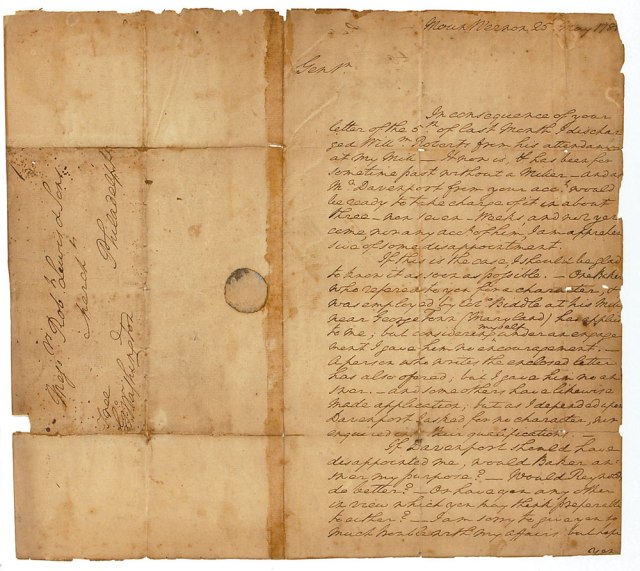 Mess.rs Rob.t Lewis & Sons
Merch.ts
Philadelphia
Free
G:Washington
Mount Vernon 25 May 178
Gent.n
In consequence of your
letter of the 5.th of last Month I dischar-
ged Will.m Roberts from his attendance
at my Mill — It now is, & has been for
sometime past without a Miller — and as
M.r Davenport from your acc.t would
be ready to take charge of it in about
three — now seven — Weeks and not yet
come nor any acct of him, I am apprehen
sive of some disappointment.
If this is the case, I should be glad
to know it as soon as possible. — One Baker
who refers to you for a character, &
was employed by Col.o Biddle at his Mill
near George Town (Maryland) has applied
to me, but considering myself under an engage
ment I gave him no encouragement. —
A person who writes the enclosed letter
has also offered; but I gave him no an
swer. — and some others have likewise
made application; but as I depended upon
Davenport I asked for no character, nor
enquired into their qualifications. —
If Davenport should have
disappointed me, would Baker an
swer my purpose? — Would Reynolds
do better? — Or have you any other
in view which you may think preferable
to either? — I am sorry to give you so
much trouble with my affairs but hope
you